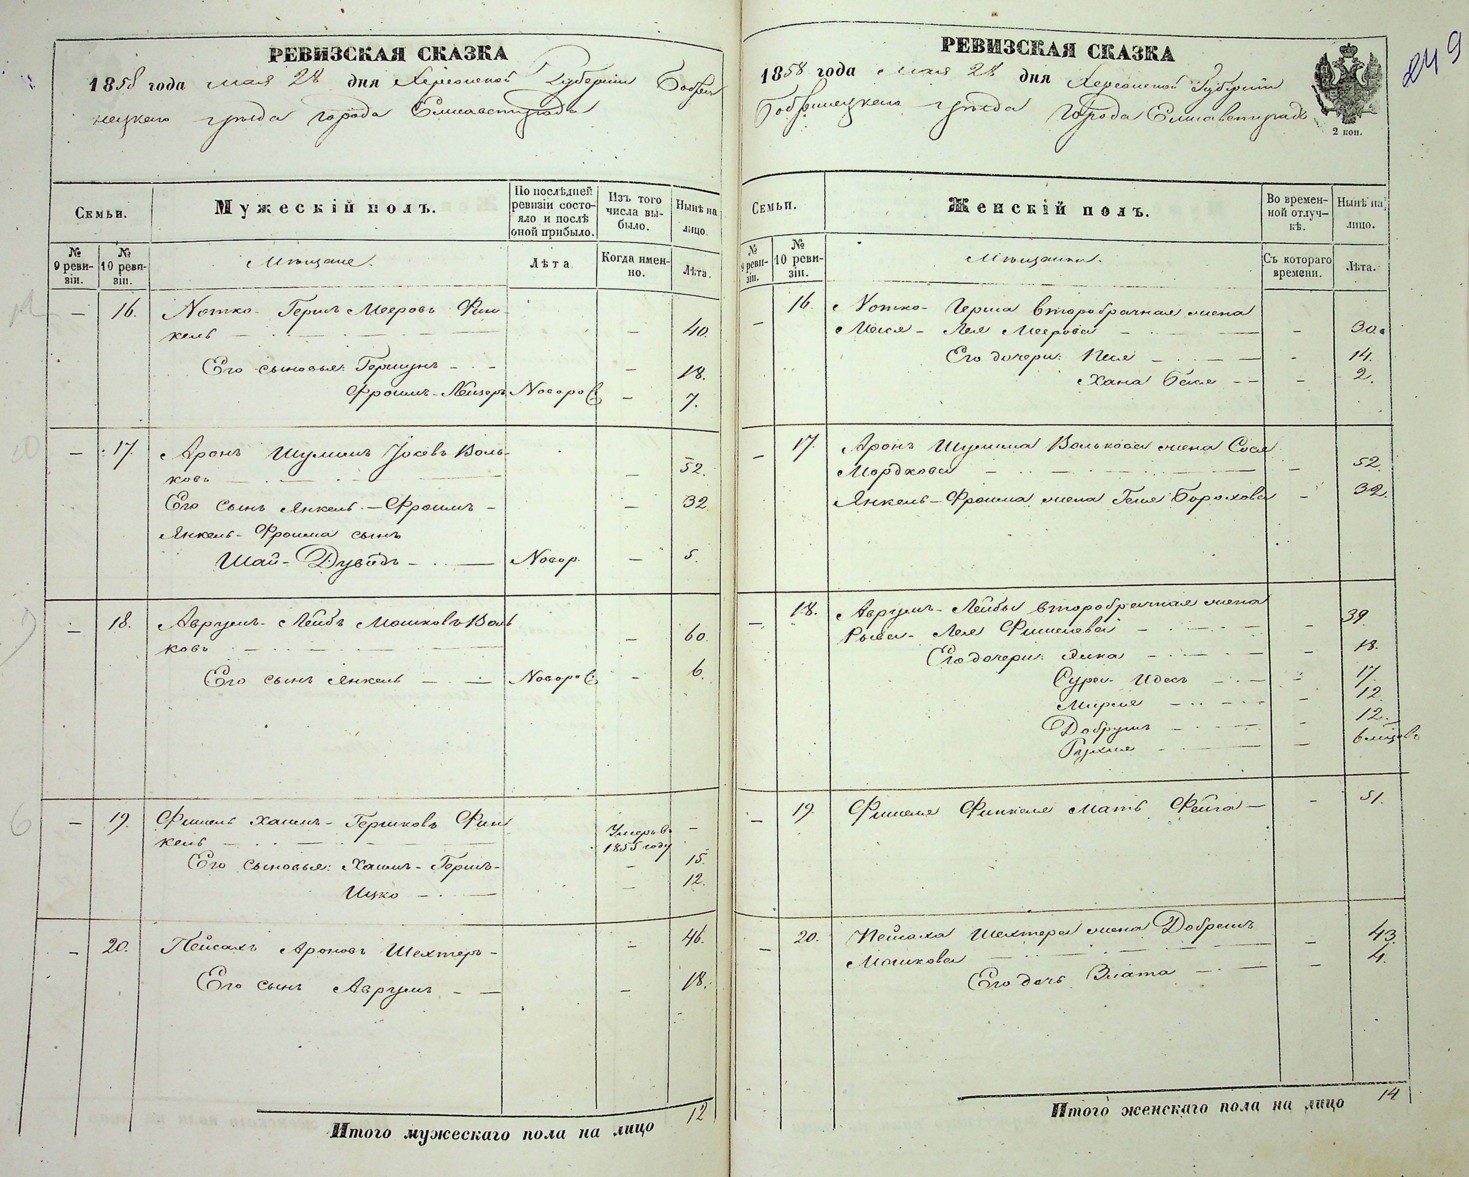 РЕВИЗСКАЯ СКАЗКА
1858 года мая 28 дня Херсонской Губерніи Бобри-
нецкаго уѣзда города Елисаветграда
Семьи.
Мужескій полъ.
По послѣдней ревизіи состо-яло и послѣ оной прибыло.
Изъ того числа вы-было.
Нынѣ на лицо.
№ 9 реви-зіи.
№ 10 реви-зіи.
Мѣщане.
Лѣта.
Когда имен-но.
Лѣта.
— 16. Нотко - Герш Мееровъ Фин-
кель — — 40.
Его сыновья: Гершунъ — — 18.
Фроимъ - Лейзеръ Новоро — 7.
— 17. Аронъ Шулимъ Іосевъ Воль-
ковъ — — 52.
Его сынъ Янкель - Фроимъ - — 32
Янкель - Фроима сынъ
Шай - Дувидъ — Новор. — 5.
— 18. Аврумъ - Лейбъ Мошковъ Воль
ковъ — — 60.
Его сынъ Янкель — Новор — 6.
— 19. Фишель Хаимъ - Гершковъ Фин
кель — Умеръ въ 1855 году —
Его сыновья: Хаимъ - Гершъ - — 15.
Ицко — — 12.
— 20. Пейсахъ Ароновъ Шехтеръ - — 46.
Его сынъ Аврумъ — — 18.
Итого мужескаго пола на лицо 12
249
РЕВИЗСКАЯ СКАЗКА
1858 года мая 28 дня Херсонской Губерніи
Бобринецкаго уѣзда Города Елисаветграда
2 коп.
Семьи.
Женскій полъ.
Во времен-ной отлуч-кѣ.
Нынѣ на лицо.
№ 9 реви-зіи.
№ 10 реви-зіи.
Мѣщанки.
Съ котораго времени.
Лѣта.
— 16. Нотко - Герша второбрачная жена
- Лея Меерова — — 30.
Его дочери: Песя — — 14.
Хана Бейся — — 2.
— 17. Аронъ Шулима Волькова жена Сося
Мордкова — — 52.
Янкель - Фроима жена Геня Борохова — 32.
— 18. Аврумъ - Лейбы второбрачная жена
- Лея Фишелева — — 39.
Его дочери: — — 18.
Сура - Идесъ — — 17.
Мирля — — 12
Добрушъ — — 12.
Рухля — — 6 мѣсяцовъ
— 19. Фишеля Финкеля мать Фейга — — 51.
— 20. Пейсаха Шехтера жена Добрешъ
Мошкова — — 43.
Его дочь Злата — — 4.
Итого женскаго пола на лицо 14